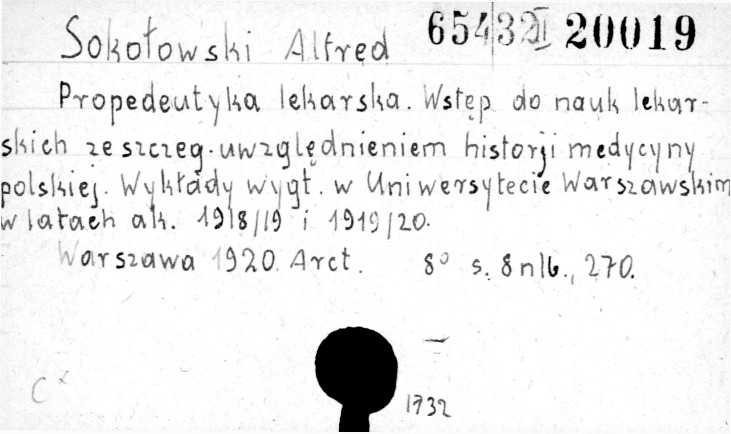 Sokołowski Alfred 65432 II 20019
Propedeutyka lekarska. Wstęp do nauk lekar-
skich ze szczeg. uwzględnieniem historji medycyny
polskiej. Wykłady wygł. w Uniwersytecie Warszawskim
w latach ak. 1918/19 i 1919/20.
Warszawa 1920. Arct. 8° s. 8 nlb., 270.
C x
1732